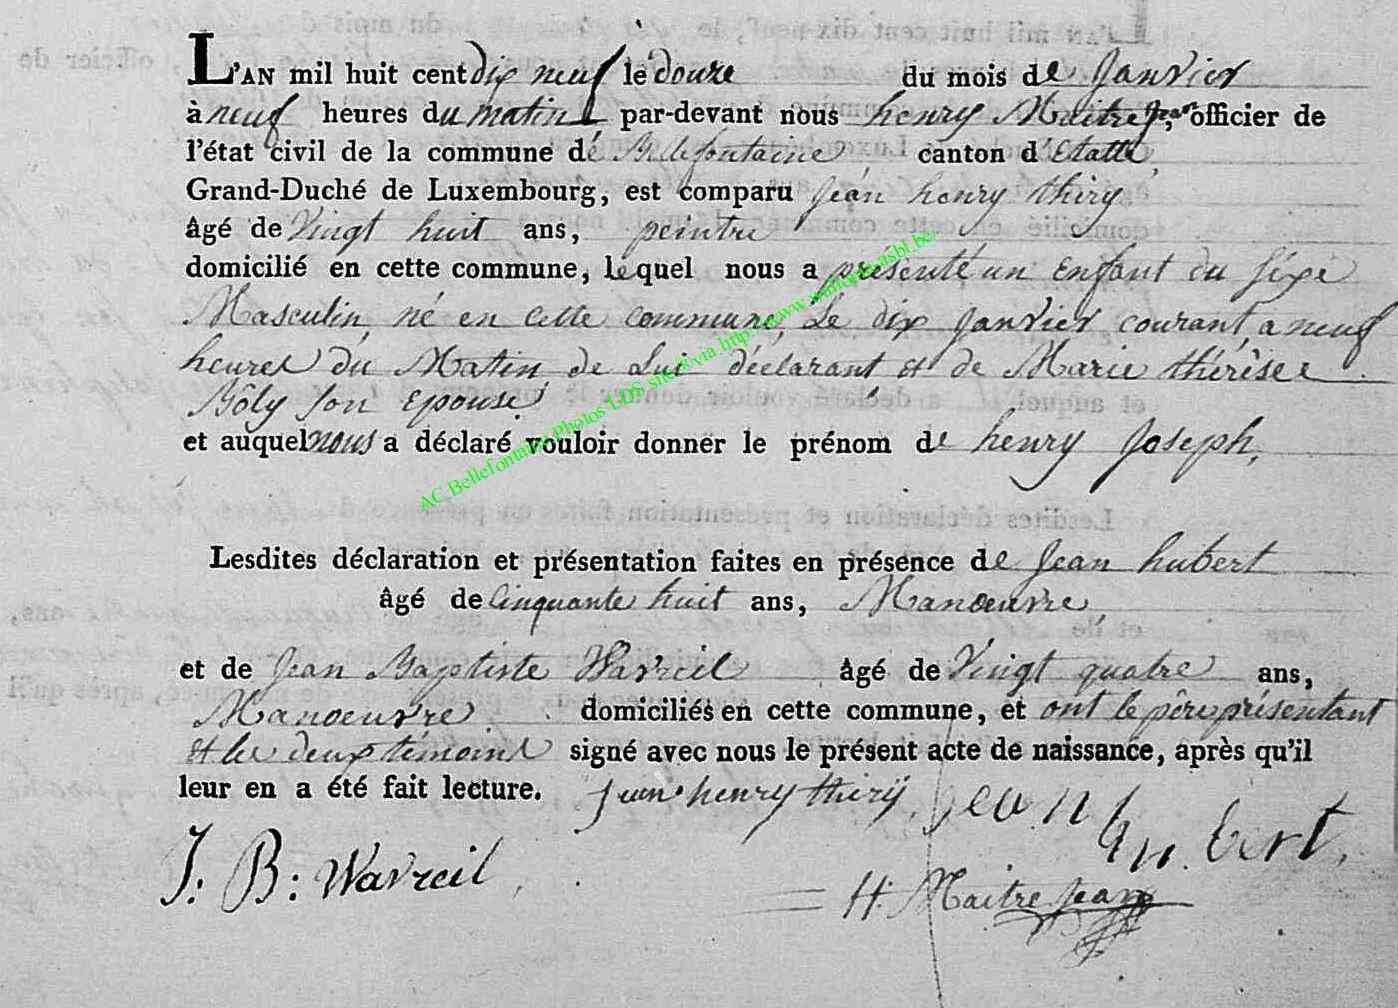 L'AN mil huit cent dix neuf le douze du mois de Janvier
à neuf heures du matin par-devant nous henry Maitrejean, officier de
l'état civil de la commune de Bellefontaine canton d'Etalle
Grand-Duché de Luxembourg, est comparu jean henry thiry
âgé de Vingt huit ans, peintre
domicilié en cette commune, lequel nous a présenté un Enfant du Sexe
Masculin, né en cette commune, Le dix Janvier courant, a neuf
heures du Matin de Lui déclarant et de Marie thérèse
Bôly Son Epouse
et auquel nous a déclaré vouloir donner le prénom de henry Joseph,
Lesdites déclaration et présentation faites en présence de Jean hubert
âgé de Cinquante huit ans, Manœuvre,
et de Jean Baptiste Wavreil âgé de Vingt quatre ans,
Manoeuvre domiciliés en cette commune, et ont le père présentant
et les deux témoins signé avec nous le présent acte de naissance, après qu'il
leur en a été fait lecture. jean henry thirÿ jean
hubert.
J. B: Wavreil
H. Maitrejean
AC Bellefontaine Photos LDS via http://www.